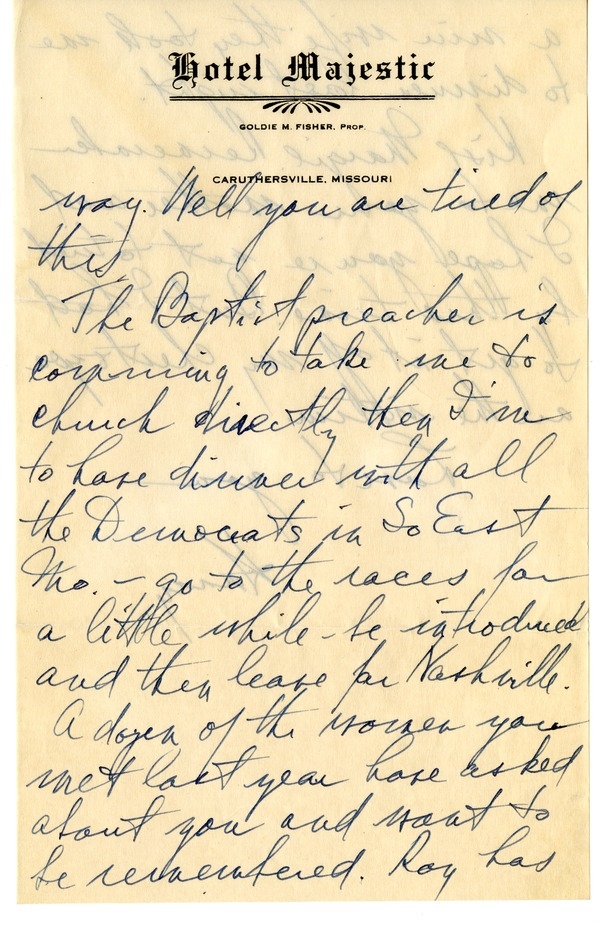 Hotel Majestic
GOLDIE M. FISHER, PROP.
CARUTHERSVILLE, MISSOURI
way. Well you are tired of
this.
The Baptist preacher is
comming to take me to
church directly then I'm
to have dinner with all
the Democrats in So East
Mo. - go to the races for
a little while - be introduced
and then leave for Nashville.
A dozen of the women you
met last year have asked
about you and want to
be remembered. Roy has